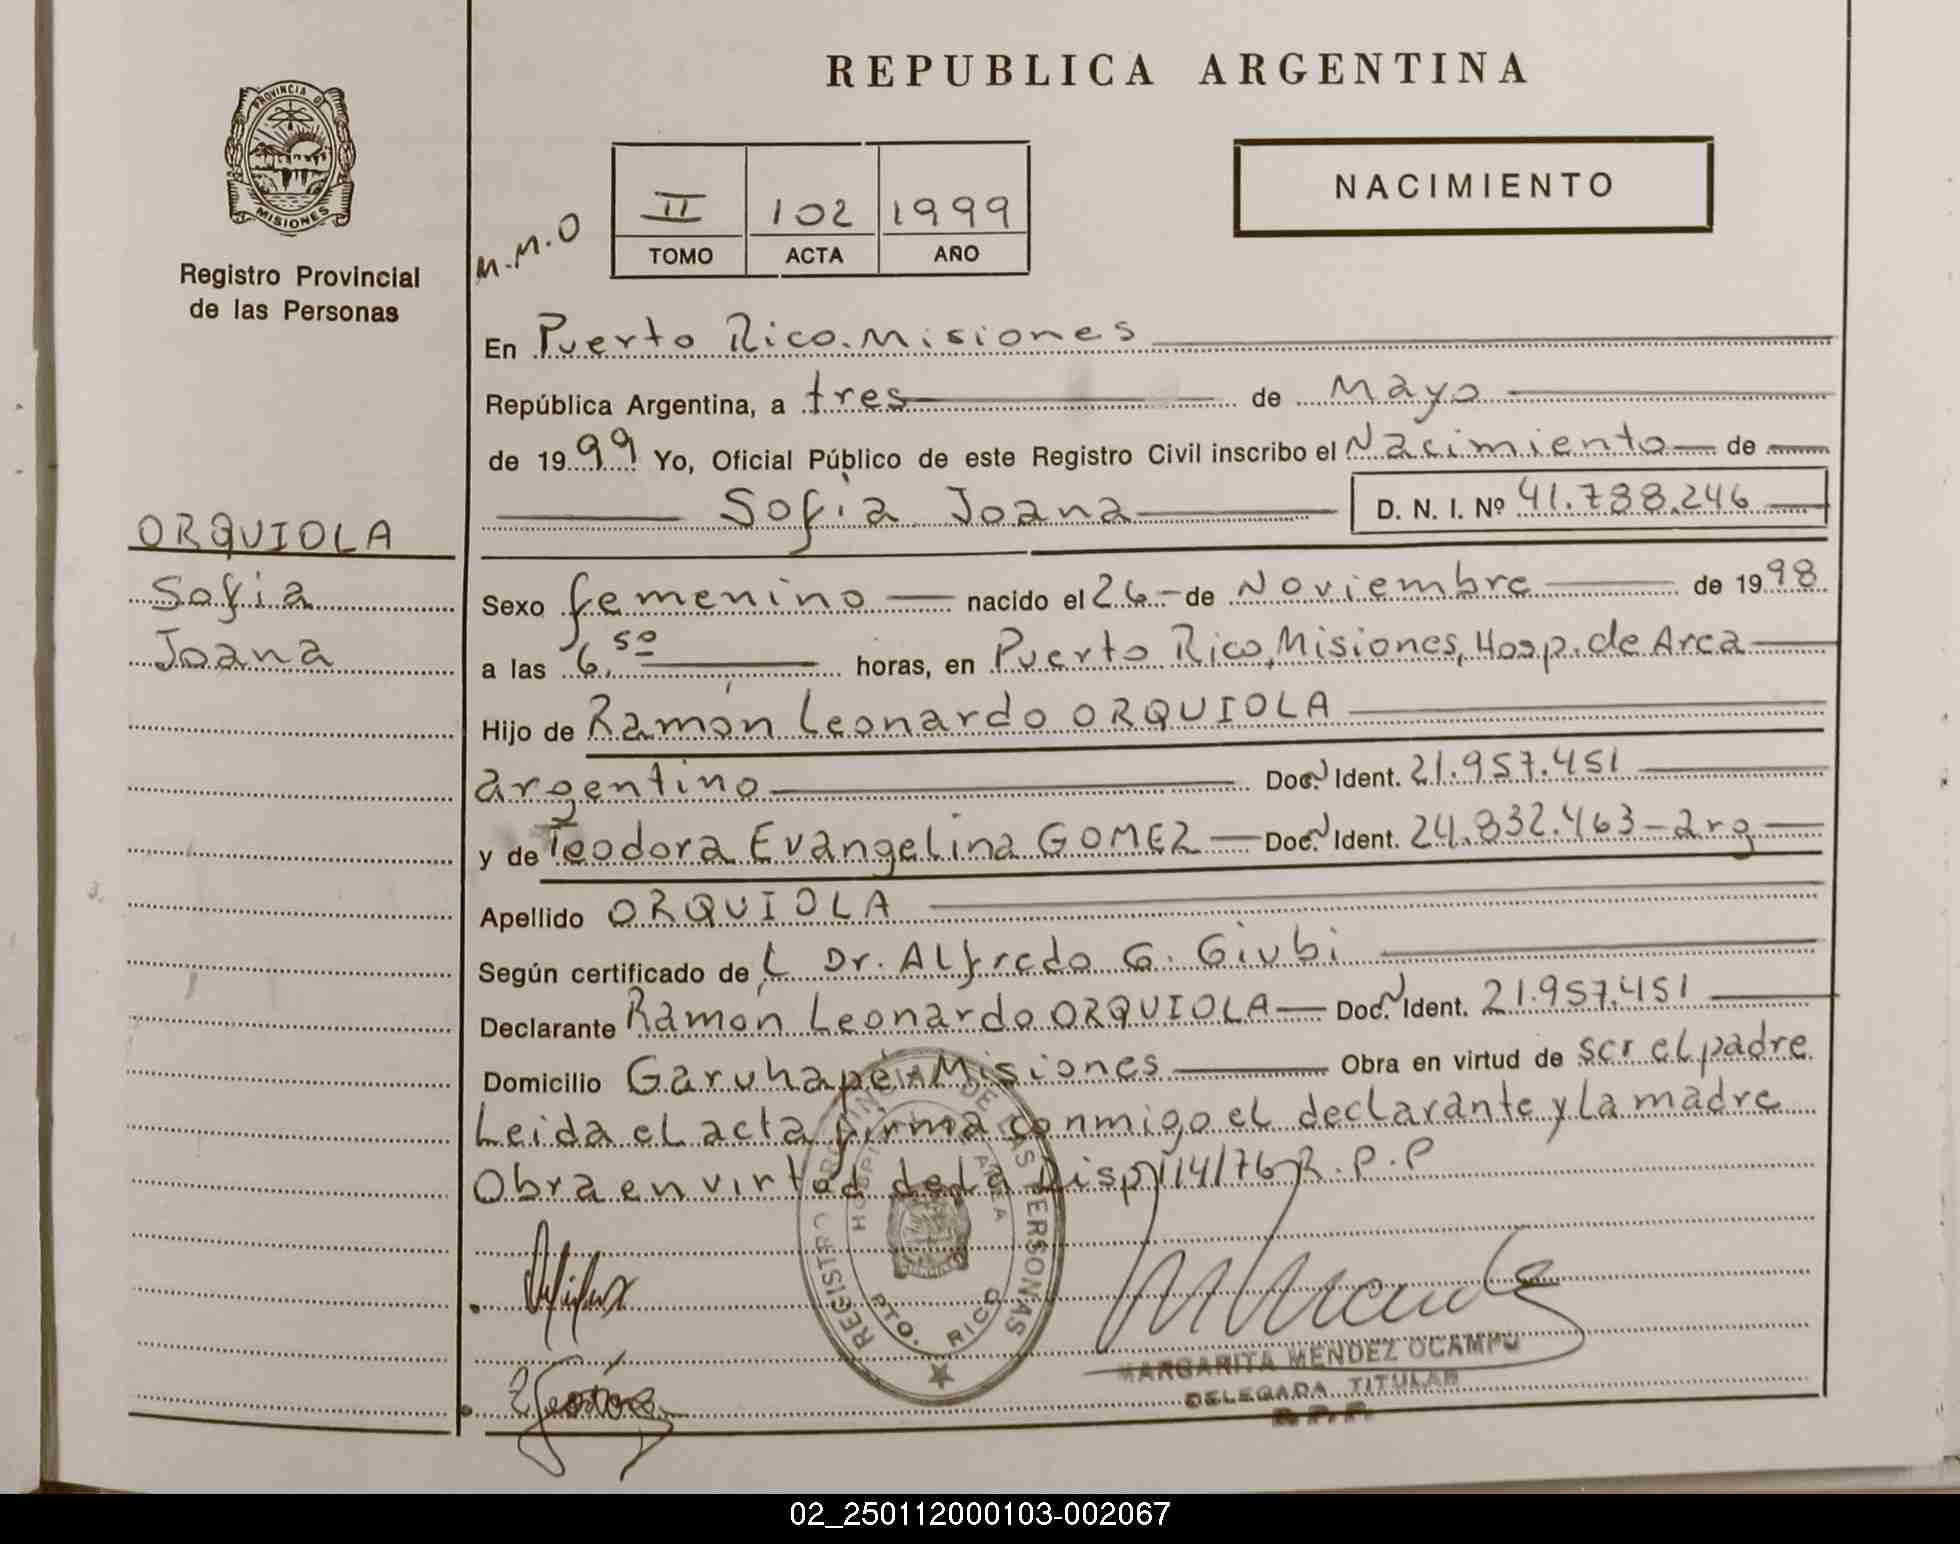 REPUBLICA ARGENTINA
PROVINCIA DE
MISIONES
Registro Provincial
de las Personas
M.M.O
II 102 1999
TOMO ACTA AÑO
NACIMIENTO
En Puerto Rico. Misiones
República Argentina, a tres de Mayo
de 1999 Yo, Oficial Público de este Registro Civil inscribo el Nacimiento de
Sofia Joana D. N. I. Nº 41.788.246
ORQUIOLA
Sofia
Joana
Sexo femenino nacido el 26 de Noviembre de 1998
a las 6,50 horas, en Puerto Rico, Misiones, Hosp. de Area
Hijo de Ramón Leonardo ORQUIOLA
argentino Doc. Ident. 21.957.451
y de Teodora Evangelina GOMEZ Doc. Ident. 24.832.463 - arg
Apellido ORQUIOLA
Según certificado del Dr. Alfredo G. Giubi
Declarante Ramón Leonardo ORQUIOLA Doc. Ident. 21.957.451
Domicilio Garuhapé Misiones Obra en virtud de ser el padre
Leida el acta firma conmigo el declarante y la madre
Obra en virtud de la Disp 114/76 R.P.P
REGISTRO PROVINCIAL DE LAS PERSONAS
HOSPITAL AREA
PTO. RICO
MARGARITA MENDEZ OCAMPO
DELEGADA TITULAR
R.P.P.
02_250112000103-002067